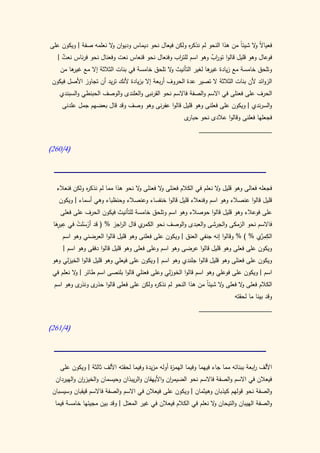 فعيالاً ولا شيئاً من هذا النحو لم نذكره ولكن فيعال نحو ديماس وديوان ولا نعلمه صفة | ويكون على
فوعال وهو قليل قالوا توراب وهو اسم للتراب وفنعال نحو قنعاس نعت وفعنال نحو فرناس نعت |
وتلحق خامسة مع زيادة غيرها لغير التأنيث ولا تلحق خامسة في بنات الثلاثة إلا مع غيرها من
الزوائد لأن بنات الثلاثة لا تصير عدة الحروف أربعة إلا بزيادة لأنك تريد أن تجاوز الأصل فيكون
الحرف على فعنلى في الاسم والصفة فالاسم نحو القرنبى والعلندى والوصف الحبنطى والسبندي
والسرندي | ويكون على فعلنى وهو قليل قالوا عفرنى وهو وصف وقد قال بعضهم جمل علدنى
فجعلها فعلنى وقالوا علادى نحو حبارى
(260/4)
فجعله فعالى وهو قليل ولا نعلم في الكلام فعنلى ولا فعنلى ولا نحو هذا مما لم نذكره ولكن فنعلاء
قليل قالوا عنصلاء وهو اسم وفنعلاء قليل قالوا خنفساء وعنصلاء وحنظباء وهي أسماء | ويكون
على فوعلاء وهو قليل قالوا حوصلاء وهو اسم وتلحق خامسة للتأنيث فيكون الحرف على فعلى
فالاسم نحو الزمكى والجرشى والعبدى والوصف نحو الكمري قال الراجز % ( قد أرْسلَتْ في عيرها
الكِمِرّي % ) % وقالوا إنه حنفي العنق | ويكون على فعلنى وهو قليل قالوا العرضنى وهو اسم
ويكون على فعلى وهو قليل قالوا عرضى وهو اسم وعلى فعلى وهو قليل قالوا دفقى وهو اسم |
ويكون على فعنلى وهو قليل قالوا جلندي وهو اسم | ويكون على فيعلي وهو قليل قالوا الخيزلي وهو
اسم | ويكون على فوعلي وهو اسم قالوا الخوزلي وعلى فعنلي قالوا بلنصى اسم طائر | ولا نعلم في
الكلام فعلى ولا فعلى ولا شيئاً من هذا النحو لم نذكره ولكن على فعلى قالوا حذرى ونذرى وهو اسم
وقد بينا ما لحقته
(261/4)
الألف رابعة ببنائه مما جاء فيهما وفيما الهمزة أوله مزيدة وفيما لحقته الألف ثالثة | ويكون على
فيعلان في الاسم والصفة فالاسم نحو الضيمران والأيهقان والريبذان وحيسمان والخيزران والهيردان
والصفة نحو قولهم كيذبان وهيثمان | ويكون على فيعلان في الاسم والصفة فالاسم قيقبان وسيسبان
والصفة الهيبان والتيحان ولا نعلم في الكلام فيعلان في غير المعتل | وقد بين مجيئها خامسة فيما